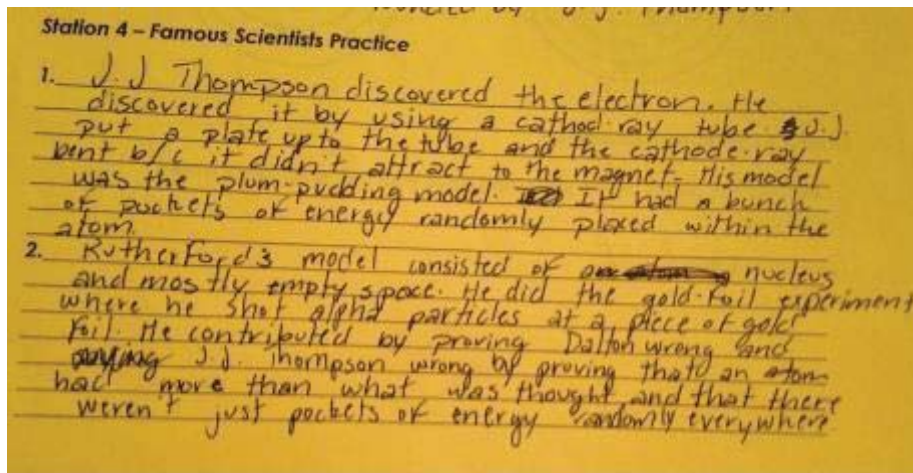 Station 4 – Famous Scientists Practice
1. J.J Thompson discovered the electron. He
discovered it by using a cathod-ray tube. J.J.
put a plate up to the tube and the cathode-ray
bent b/c it didn't attract to the magnet. His model
was the plum-pudding model. It had a bunch
of pockets of energy randomly placed within the
atom.
2. Rutherford's model consisted of nucleus
and mostly empty space. He did the gold-foil experiment
where he shot alpha particles at a piece of gold
foil. He contributed by proving Dalton wrong and
J.J. Thompson wrong by proving that an atom
had more than what was thought, and that there
weren't just pockets of energy randomly everywhere